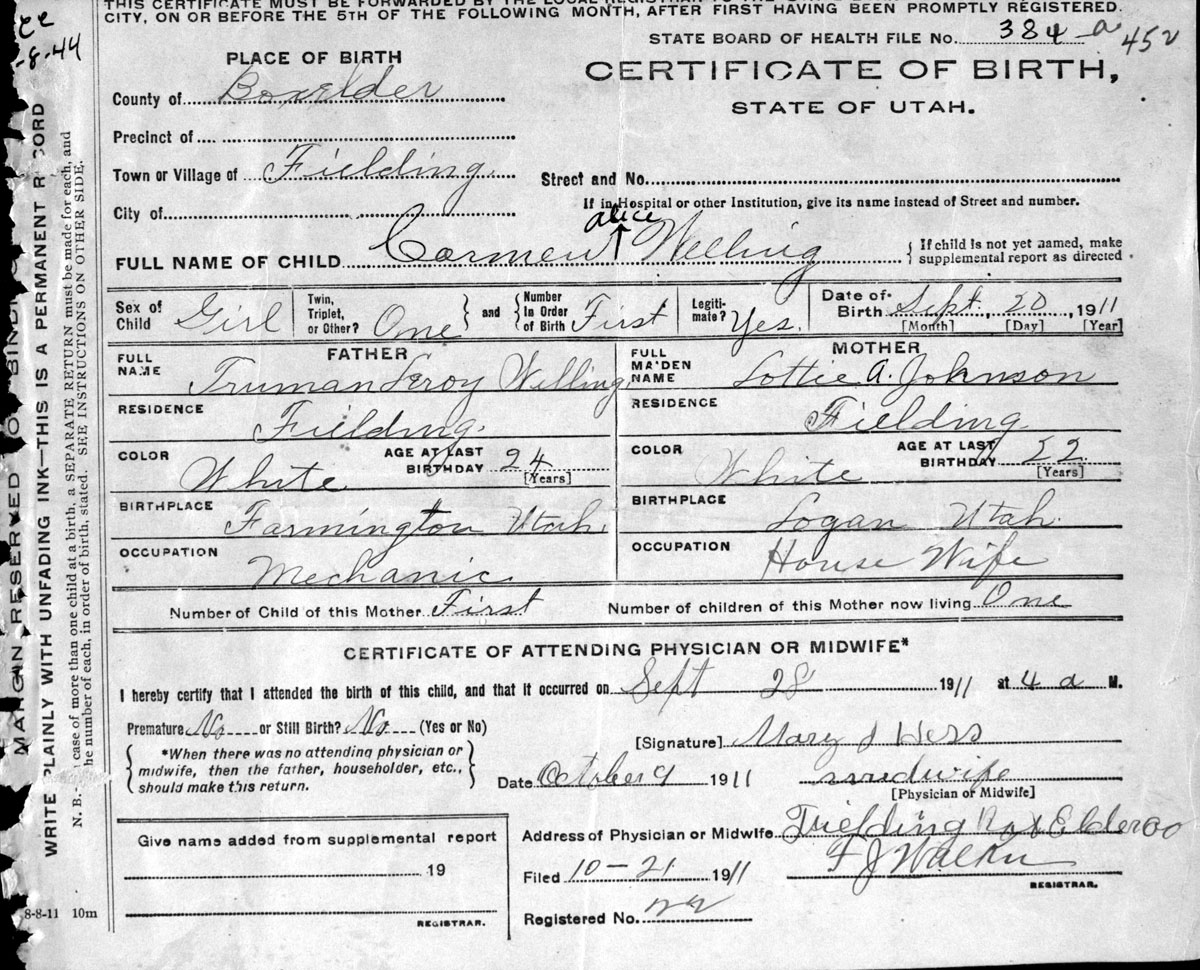 THIS CERTIFICATE MUST BE FORWARDED BY THE LOCAL REGISTRAR TO THE
CITY, ON OR BEFORE THE 5TH OF THE FOLLOWING MONTH, AFTER FIRST HAVING BEEN PROMPTLY REGISTERED.
-8-44
STATE BOARD OF HEALTH FILE No. 384-a 452
PLACE OF BIRTH
CERTIFICATE OF BIRTH,
STATE OF UTAH.
County of Boxelder
Precinct of
Town or Village of Fielding
Street and No.
City of
If in Hospital or other Institution, give its name instead of Street and number.
alice
FULL NAME OF CHILD Carmen Welling
{ If child is not yet named, make
supplemental report as directed
Sex of Child Girl
Twin, Triplet, or Other? One } and { Number In Order of Birth First
Legitimate? Yes.
Date of Birth Sept. 20, 1911
[Month] [Day] [Year]
FATHER
FULL NAME Truman Leroy Welling
MOTHER
FULL MAIDEN NAME Lottie A. Johnson
RESIDENCE Fielding.
RESIDENCE Fielding
COLOR White AGE AT LAST BIRTHDAY 24 [Years]
COLOR White AGE AT LAST BIRTHDAY 22 [Years]
BIRTHPLACE Farmington Utah.
BIRTHPLACE Logan Utah.
OCCUPATION Mechanic
OCCUPATION House Wife
Number of Child of this Mother First Number of children of this Mother now living One
CERTIFICATE OF ATTENDING PHYSICIAN OR MIDWIFE*
I hereby certify that I attended the birth of this child, and that it occurred on Sept 28 1911 at 4 a M.
Premature No or Still Birth? No (Yes or No)
{ *When there was no attending physician or
midwife, then the father, householder, etc.,
should make this return. }
[Signature] Mary J Hess
Date October 9 1911 midwife
[Physician or Midwife]
Address of Physician or Midwife Fielding Box Elder Co
Give name added from supplemental report
19
REGISTRAR.
Filed 10-21 1911
F J
REGISTRAR.
Registered No.
8-8-11 10m
MARGIN RESERVED
WRITE PLAINLY WITH UNFADING INK—THIS IS A PERMANENT RECORD
N. B.— case of more than one child at a birth, a SEPARATE RETURN must be made for each, and
he number of each, in order of birth, stated. SEE INSTRUCTIONS ON OTHER SIDE.